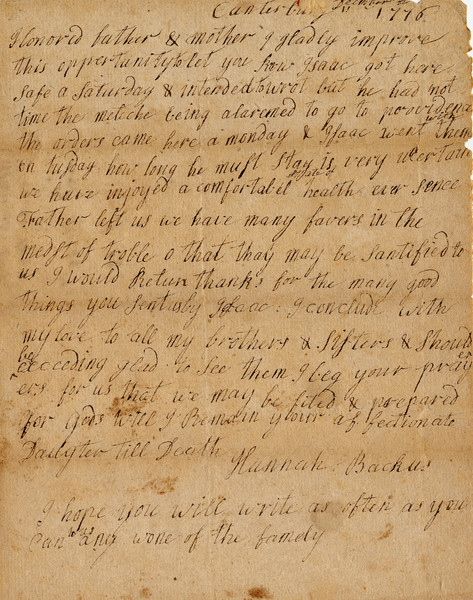 Canterbury December 11th 1776
Honored father & mother I gladly improve
this oppertunity to let you know Isaac got here
safe a Saturday & intended to wrot but he had not
time the meteche being alaremed to go to providence
the orders came here a monday & Isaac went with them
on tusday how long he must stay is very uncertain
we have injoyed a comfortabel state of health ever sence
Father left us we have many favers in the
medst of troble o that thay may be santified to
us I would Return thanks for the many good
things you sent us by Isaac: I conclude with
my love to all my brothers & Sisters & Should
be exceeding glad to see them I beg your pray
ers for us that we may be fited & prepared
for Gods will I Remain your affectionate
Daughter till Death
Hannah: Backus
I hope you will write as often as you
Can to us any wone of the famely